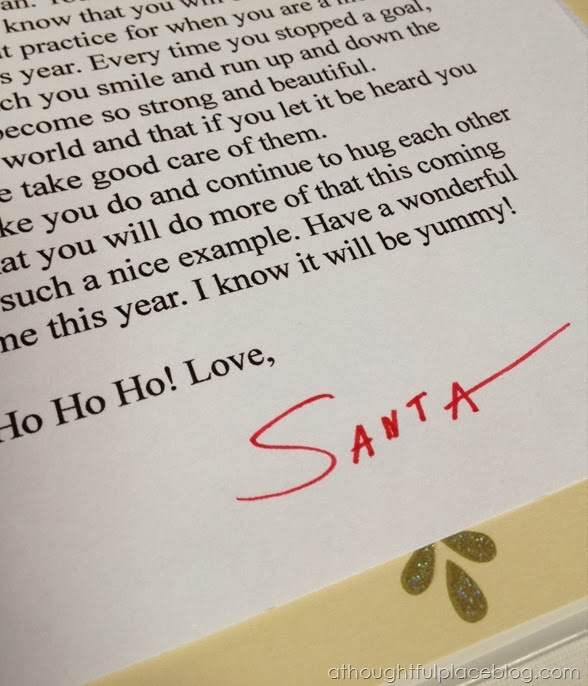 know that you will
t practice for when you are a
s year. Every time you stopped a goal,
ch you smile and run up and down the
become so strong and beautiful.
world and that if you let it be heard you
e take good care of them.
ke you do and continue to hug each other
at you will do more of that this coming
such a nice example. Have a wonderful
me this year. I know it will be yummy!
Ho Ho Ho! Love,
SANTA
athoughtfulplaceblog.com